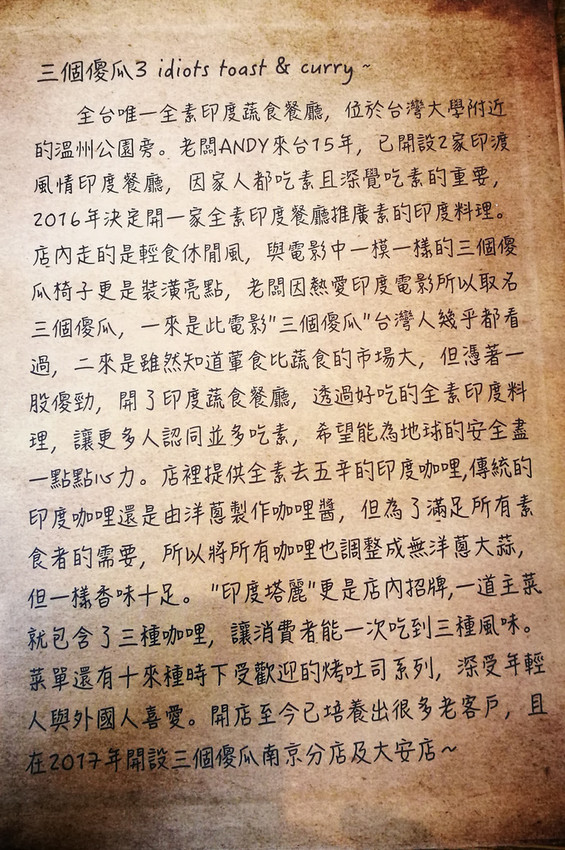 三個傻瓜3 idiots toast & curry~
全台唯一全素印度蔬食餐廳，位於台灣大學附近
的溫州公園旁。老闆ANDY來台15年，已開設2家印渡
風情印度餐廳，因家人都吃素且深覺吃素的重要，
2016年決定開一家全素印度餐廳推廣素的印度料理。
店內走的是輕食休閒風，與電影中一模一樣的三個傻
瓜椅子更是裝潢亮點，老闆因熱愛印度電影所以取名
三個傻瓜，一來是此電影"三個傻瓜"台灣人幾乎都看
過，二來是雖然知道葷食比蔬食的市場大，但憑著一
股傻勁，開了印度蔬食餐廳，透過好吃的全素印度料
理，讓更多人認同並多吃素，希望能為地球的安全盡
一點點心力。店裡提供全素去五辛的印度咖哩,傳統的
印度咖哩還是由洋蔥製作咖哩醬，但為了滿足所有素
食者的需要，所以將所有咖哩也調整成無洋蔥大蒜，
但一樣香味十足。"印度塔麗"更是店內招牌,一道主菜
就包含了三種咖哩，讓消費者能一次吃到三種風味。
菜單還有十來種時下受歡迎的烤吐司系列，深受年輕
人與外國人喜愛。開店至今已培養出很多老客戶，且
在2017年開設三個傻瓜南京分店及大安店~